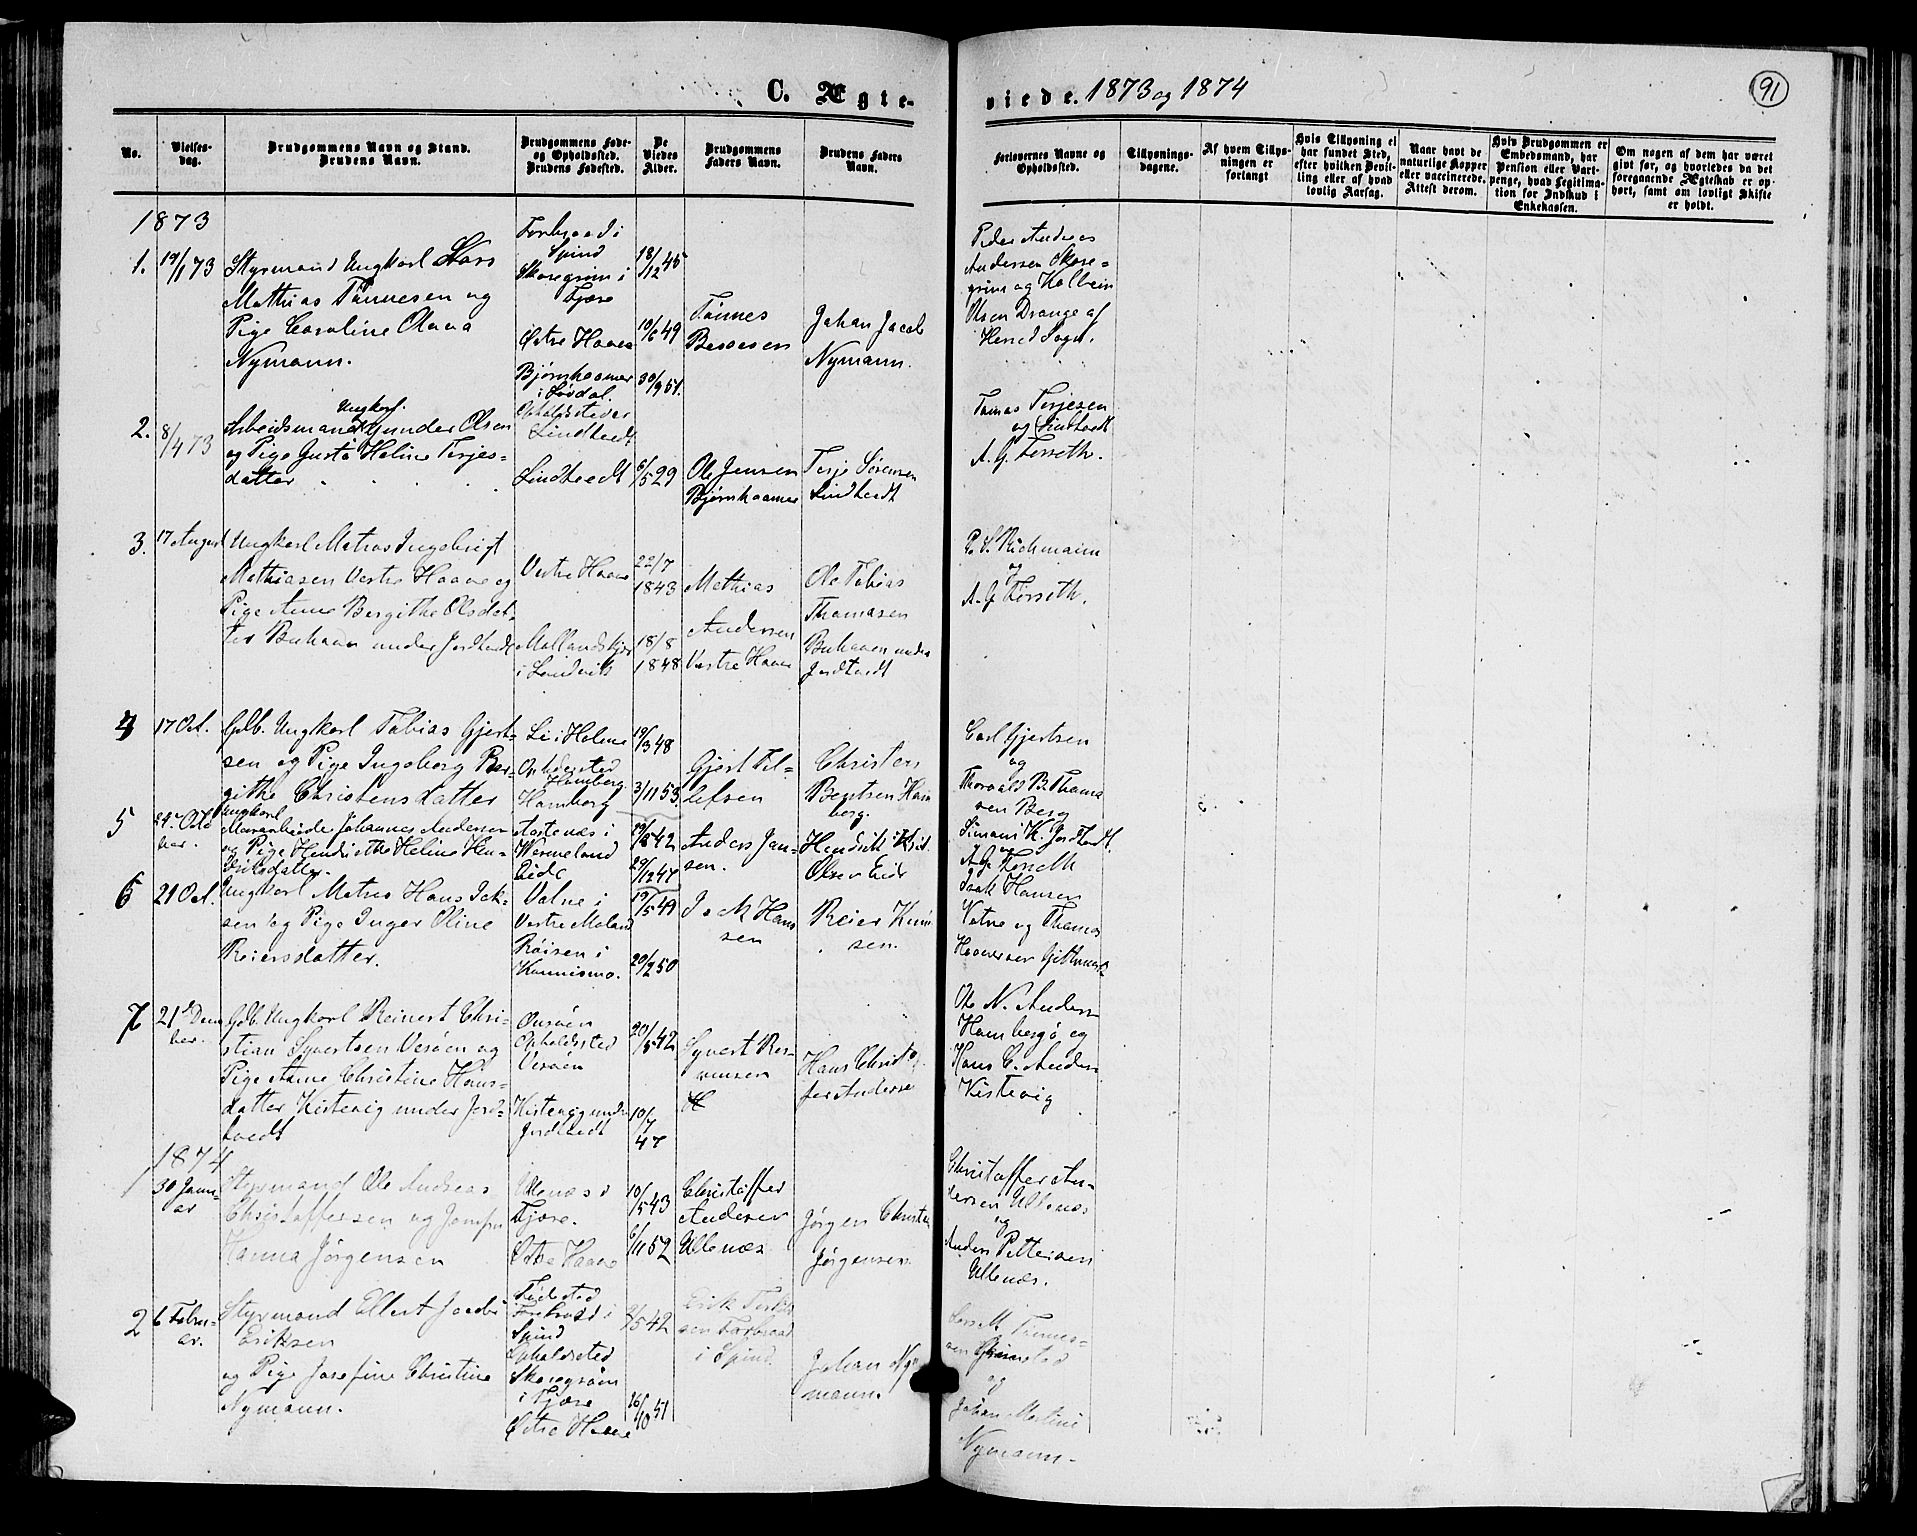 C. Ægte-
viede. 1873 og 1874
91
No.
Vielses-
dag.
Brudgommens Navn og Stand.
Brudens Navn.
Brudgommens Føde-
og Opholdssted.
Brudens Fødested.
De
Viedes
Alder.
Brudgommens
Faders Navn.
Brudens Faders
Navn.
Forlovernes Navne og
Opholdssted.
Tillysnings-
dagene.
Af hvem Tillys-
ningen er
forlangt
Hvis Tillysning ei
har fundet Sted,
efter hvilken Bevil-
ling eller af hvad
lovlig Aarsag.
Naar havt de
naturlige Kopper
eller vaccinerede.
Attest derom.
Hvis Brudgommen er
Embedsmand, har
Pension eller Vart-
penge, hvad Legitima-
tion for Indskud i
Enkekassen.
Om nogen af dem har været
givt før, og hvorledes da det
foregaaende Ægteskab er op-
hørt, samt om lovligt Skifte
er holdt.
1873
1.
19/1 73
Styrmand Ungkarl Lars
Mathias Tønnesen og
Pige Caroline Olava
Nymann.
Spind
i
Fjære
Østre Haave
18/12 45
10/6 49
Tønnes
Johan Jacob
Nymann.
Peder Andreas
Andersen Skare-
grøm og
Olsen Drange af
Herred Sogn.
2.
8/4 73
Ungkarl.
Arbeidsmand Gunder Olsen
og Pige Gusta Heline Terjes-
datter
Bjørnhaamer
Opholdssted
Lindtvedt
Lindtvedt
30/9 51.
6/5 29
Ole Jensen
Bjørnhaamer
Terje Sørensen
Lindtvedt
Tomas Terjesen
og Lindtvedt
A. G. Forseth.
3.
17 August
Ungkarl Matros Ingebrigt
Mathiasen Vestre Haave og
Pige Anne Bergithe Olsdat-
ter Buhaven under Jordtvedt
Vestre Haave
i Landvik
22/7
1843
18/8
1848
Mathias
Andersen
Vestre Haave
Ole Tobias
Thomasen
Buhaven under
Jordtvedt
og
A. G. Forseth.
4
17 Oct.
Gdb. Ungkarl Tobias Gjert-
sen og Pige Ingeborg Ber-
githe Christensdatter
Li i Holme
Opholdssted
Homborg.
Homborg
19/3 48
3/11 53
Gjert Til-
lefsen
Christen
Bentsen Hom
borg.
Carl Gjertsen
og
Thorvald B. Thoma
sen Berg
5
24 Octo
ber.
Ungkarl
Murarbeide Johannes Andersen
og Pige Henriette Heline Hen-
driksdatter.
i
Wermeland
Eide
42
29/12 47
Anders Jan-
sen.
Hendrik
Olsen Eide
Simon K. Jordtvedt
A. G. Forseth
6
21 Oct.
Ungkarl Matros Hans Isak-
sen og Pige Inger Oline
Reiersdatter.
Vatne i
Vestre Moland
Røisen i
19/5 49
20/2 50
Isak Han
sen
Reier Knud
sen.
Isak Hansen
Vatne og Thomas
7
21 Decem
ber.
Gdb. Ungkarl Reinert Chri-
stian Syvertsen Vesøen og
Pige Anne Christine Hans-
datter Kistevig under Jord-
tvedt
Opholdssted
Vesøen
Kistevig under
Jordtvedt
20/5 42
10/7
47
Syvert Ras-
mussen
Hans Christof-
fer Andersen
Ole N. Anders
og
Hans C. Anders
Kistevig
1874
1
30 Janu-
ar
Styrmand Ole Andreas
Christoffersen og Jomfru
Hanna Jørgensen
Ullenæs i
Fjære.
Østre Haave
10/5 43
6/11 52
Christoffer
Andersen
Ullenæs.
Jørgen Christen
Jørgensen
Christoffer An-
dersen Ullenæs
og
Anders Pettersen
Ullenæs.
2
6 Febru-
ar.
Styrmand Ellert Jacob
Eriksen
og Pige Josefine Christine
Nymann.
Fødested
i
Spind
Opholdssted
i Fjære
Østre Haave
9/5 42
26/10 51
Erik
i Spind
Johan Ny-
mann.
Lars M. Tønnes-
sen Grimstad
og
Johan Martini
Nymann.